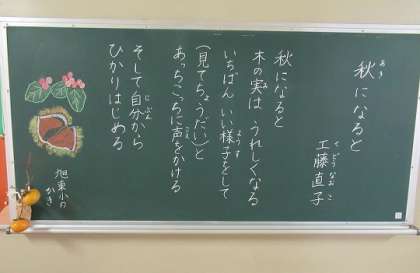 秋になると
あき
工藤直子
くどうなおこ
秋になると
木の実は うれしくなる
み
いちばん いい様子をして
ようす
(見てちょうだい)と
あっちこっちに声をかける
こえ
そして自分から
じぶん
ひかりはじめる
旭東小の
かき